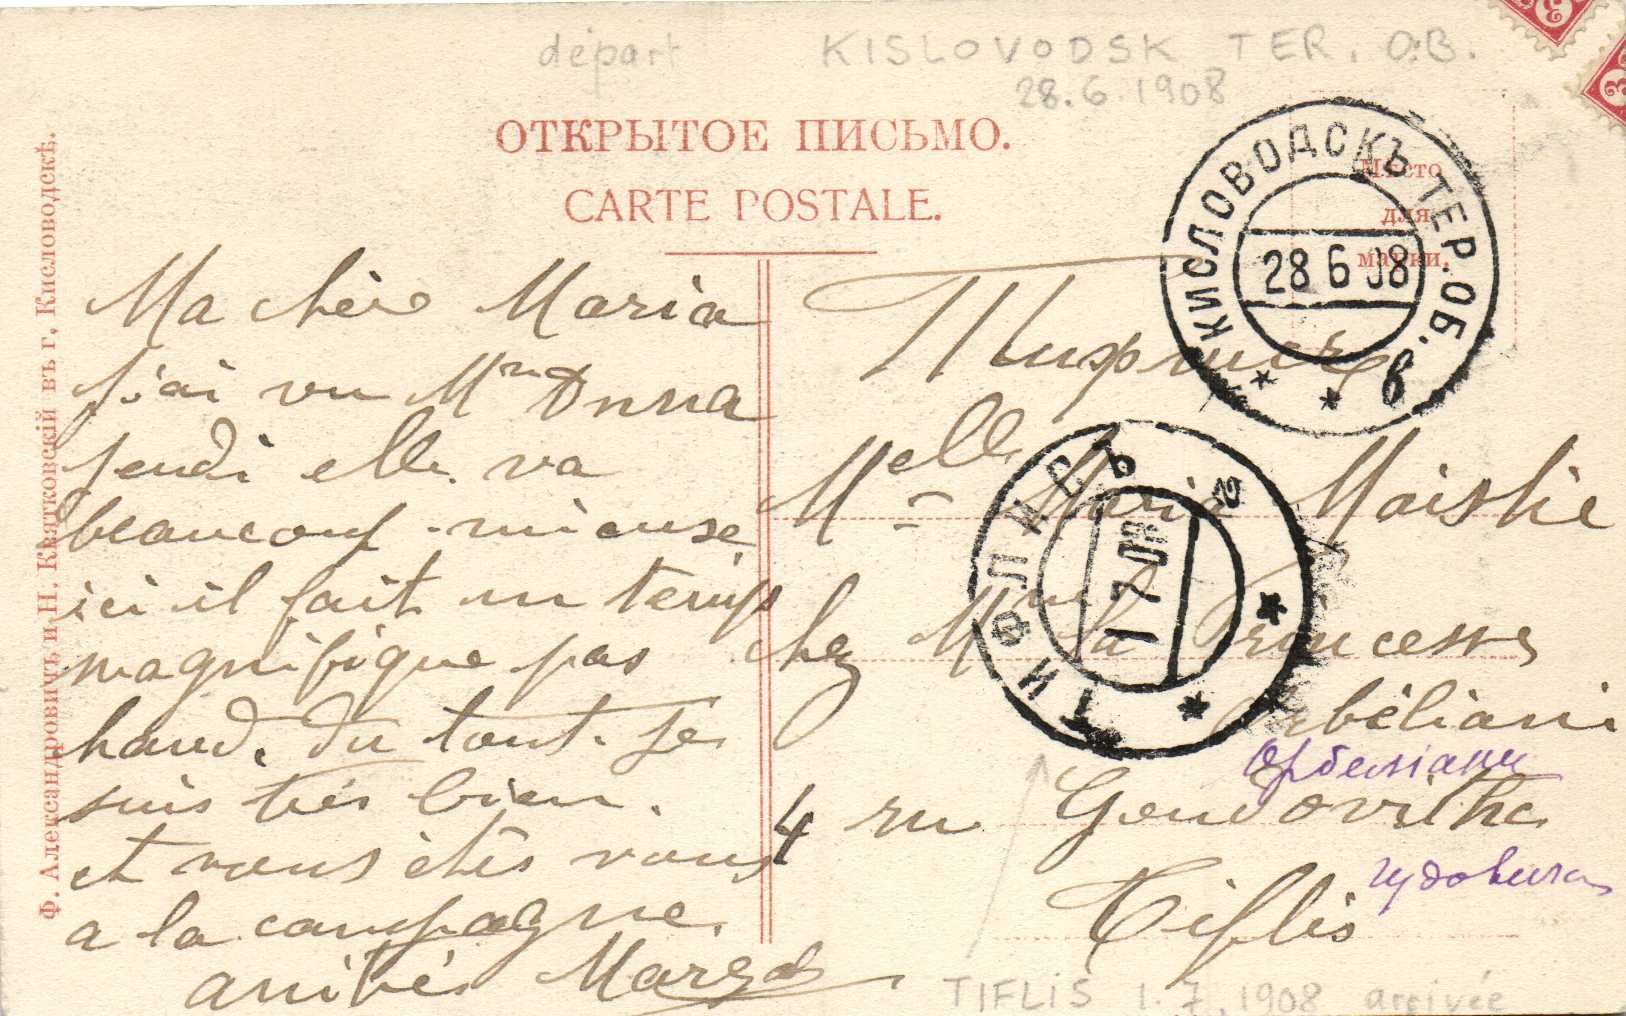 départ KISLOVODSK TER. OB.
28.6.1908
ОТКРЫТОЕ ПИСЬМО.
CARTE POSTALE.
Мѣсто
для
марки.
КИСЛОВОДСКЪ ТЕР. ОБ. в
28 6 08
Ф. Александровичъ и Н. Квятковскій въ г. Кисловодскѣ.
Ma chère Maria
j'ai vu Mm Anna
jeudi elle va
beaucoup mieuse
ici il fait un temps
magnifique pas
haud. du tout. Je
suis très bien.
et vous êtes vous
a la campagne.
Тифлисъ
Melle Maria Maiskie
chez Mme la Princesse
Orbéliani
Орбеліани
4 ru Goudovitha
гудовича
Tiflis
ТИФЛИСЪ 2
1 7 08
TIFLIS 1.7.1908 arrivée
3
3